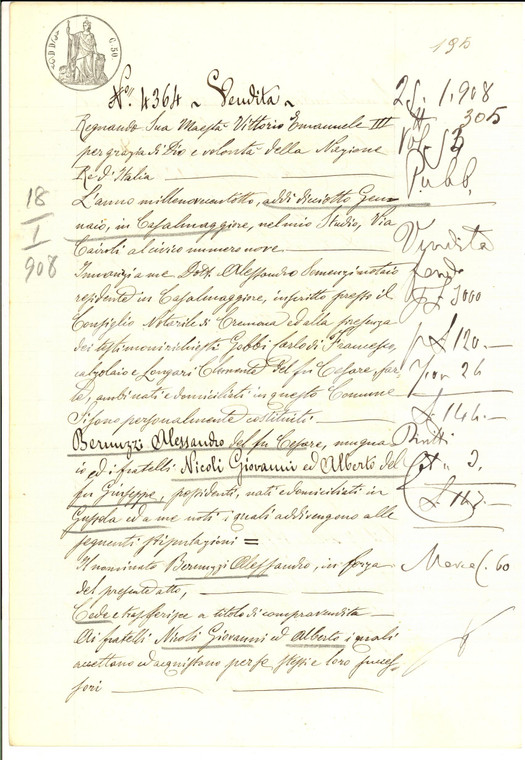 C. 50
195
N.° 4364 ~ Vendita ~
Regnando Sua Maestà Vittorio Emanuele III
per grazia di Dio e volontà della Nazione
Re d'Italia
L'anno millenovecentotto, addì diciotto Gen=
naio, in Casalmaggiore, nel mio Studio, Via
Cairoli al civico numero nove
Innanzi a me Dott. Alessandro notaio
residente in Casalmaggiore, inscritto presso il
Consiglio Notarile di Cremona ed alla presenza
dei testimoni richiesti Gobbi Carlo di Francesco,
calzolaio e Longari Clemente del fu Cesare, sar
to, ambi nati e domiciliati in questo Comune
Si sono personalmente costituiti
Bernuzzi Alessandro del fu Cesare, mugna
io ed i fratelli Nicoli Giovanni ed Alberto del
fu Giuseppe, possidenti, nati e domiciliati in
Gussola ed a me noti i quali addivengono alle
seguenti stipulazioni =
Il nominato Bernuzzi Alessandro, in forza
del presente atto,
Cede e trasferisce a titolo di compravendita
Ai fratelli Nicoli Giovanni ed Alberto i quali
accettano ed acquistano per se stessi e loro succes
sori
18
I
908
25. 1. 908
# 305
Vol. 53
Pubb.
Vendita
fondo
£ 3000
£ 120.-
26
£ 146.-
Diritti
3.
£ 147.-
Marca C. 60